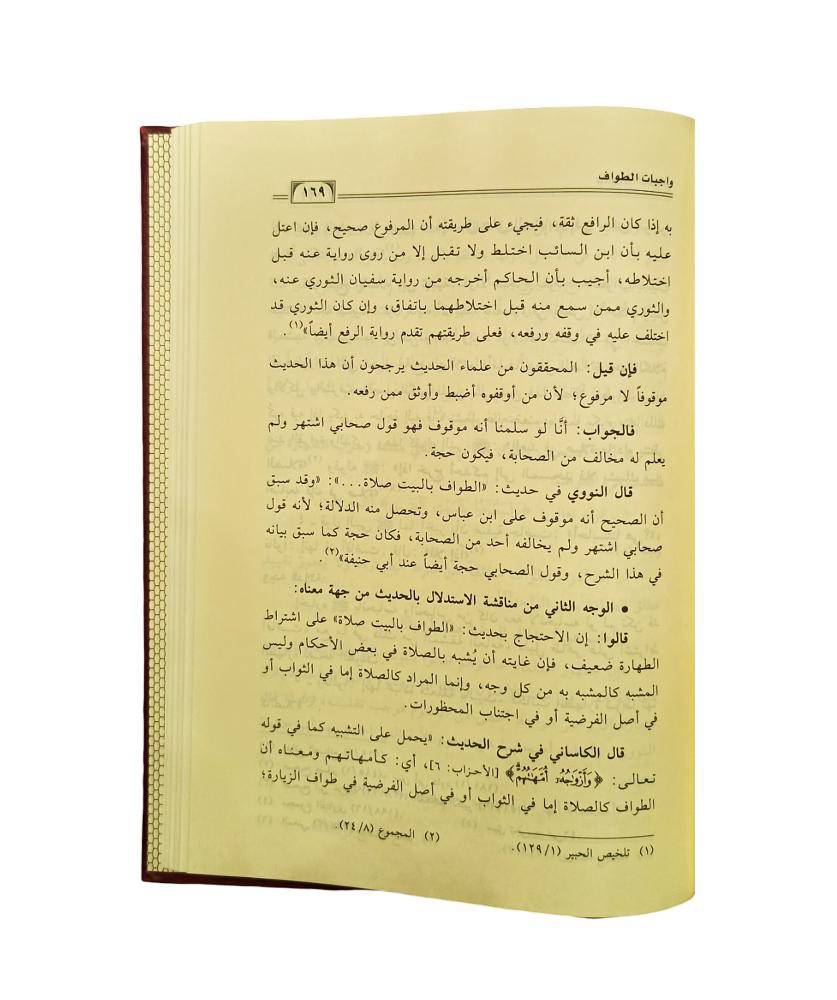 واجبات الطواف
١٦٩
به إذا كان الرافع ثقة، فيجيء على طريقته أن المرفوع صحيح، فإن اعتل
عليه بأن ابن السائب اختلط ولا تقبل إلا من روى رواية عنه قبل
اختلاطه، أجيب بأن الحاكم أخرجه من رواية سفيان الثوري عنه،
والثوري ممن سمع منه قبل اختلاطهما باتفاق، وإن كان الثوري قد
اختلف عليه في وقفه ورفعه، فعلى طريقتهم تقدم رواية الرفع أيضاً»(١).
فإن قيل: المحققون من علماء الحديث يرجحون أن هذا الحديث
موقوفاً لا مرفوع؛ لأن من أوقفوه أضبط وأوثق ممن رفعه.
فالجواب: أنَّا لو سلمنا أنه موقوف فهو قول صحابي اشتهر ولم
يعلم له مخالف من الصحابة، فيكون حجة.
قال النووي في حديث: «الطواف بالبيت صلاة...»: «وقد سبق
أن الصحيح أنه موقوف على ابن عباس، وتحصل منه الدلالة؛ لأنه قول
صحابي اشتهر ولم يخالفه أحد من الصحابة، فكان حجة كما سبق بيانه
في هذا الشرح، وقول الصحابي حجة أيضاً عند أبي حنيفة»(٢).
• الوجه الثاني من مناقشة الاستدلال بالحديث من جهة معناه:
قالوا: إن الاحتجاج بحديث: «الطواف بالبيت صلاة» على اشتراط
الطهارة ضعيف، فإن غايته أن يُشبه بالصلاة في بعض الأحكام وليس
المشبه كالمشبه به من كل وجه، وإنما المراد كالصلاة إما في الثواب أو
في أصل الفرضية أو في اجتناب المحظورات.
قال الكاساني في شرح الحديث: «يحمل على التشبيه كما في قوله
تعالى: ﴿وَأَزْوَٰجُهُۥٓ أُمَّهَٰتُهُمْ﴾ [الأحزاب: ٦]، أي: كأمهاتهم ومعناه أن
الطواف كالصلاة إما في الثواب أو في أصل الفرضية في طواف الزيارة؛
(١) تلخيص الحبير (١/١٢٩).
(٢) المجموع (٨/٢٤).